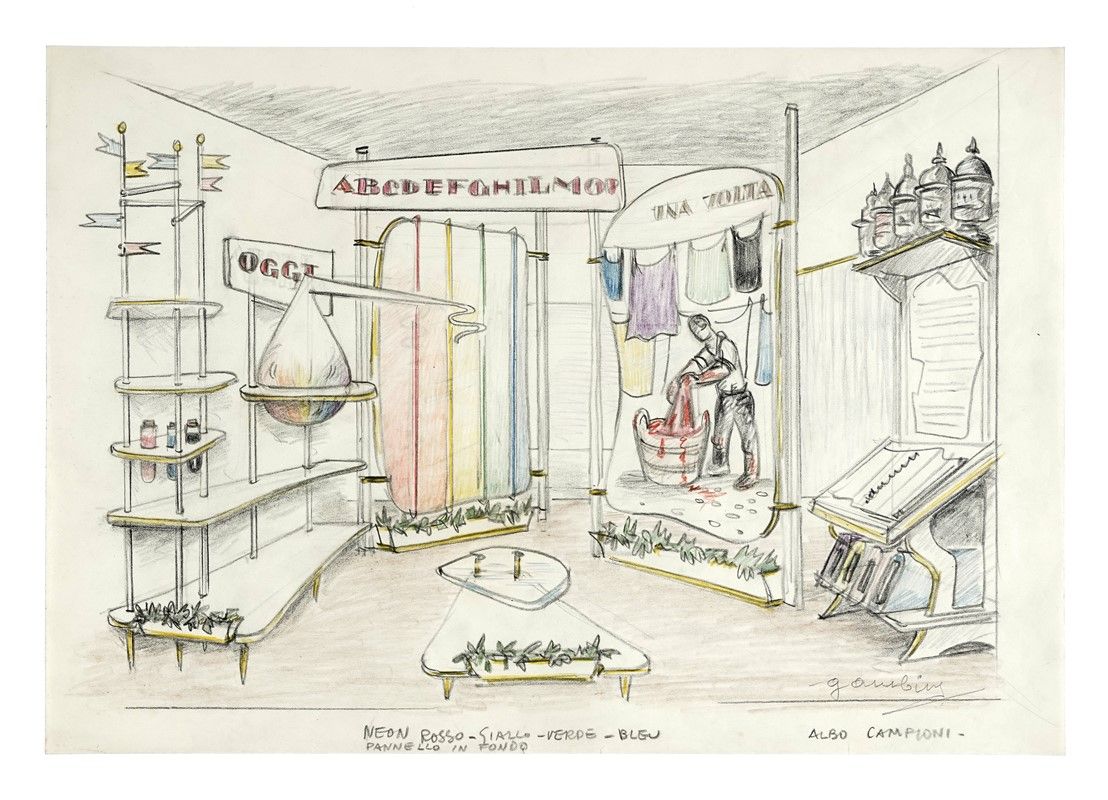 ABCDEFGHILMOP
UNA VOLTA
OGGI
NEON ROSSO - GIALLO - VERDE - BLEU
PANNELLO IN FONDO
ALBO CAMPIONI -